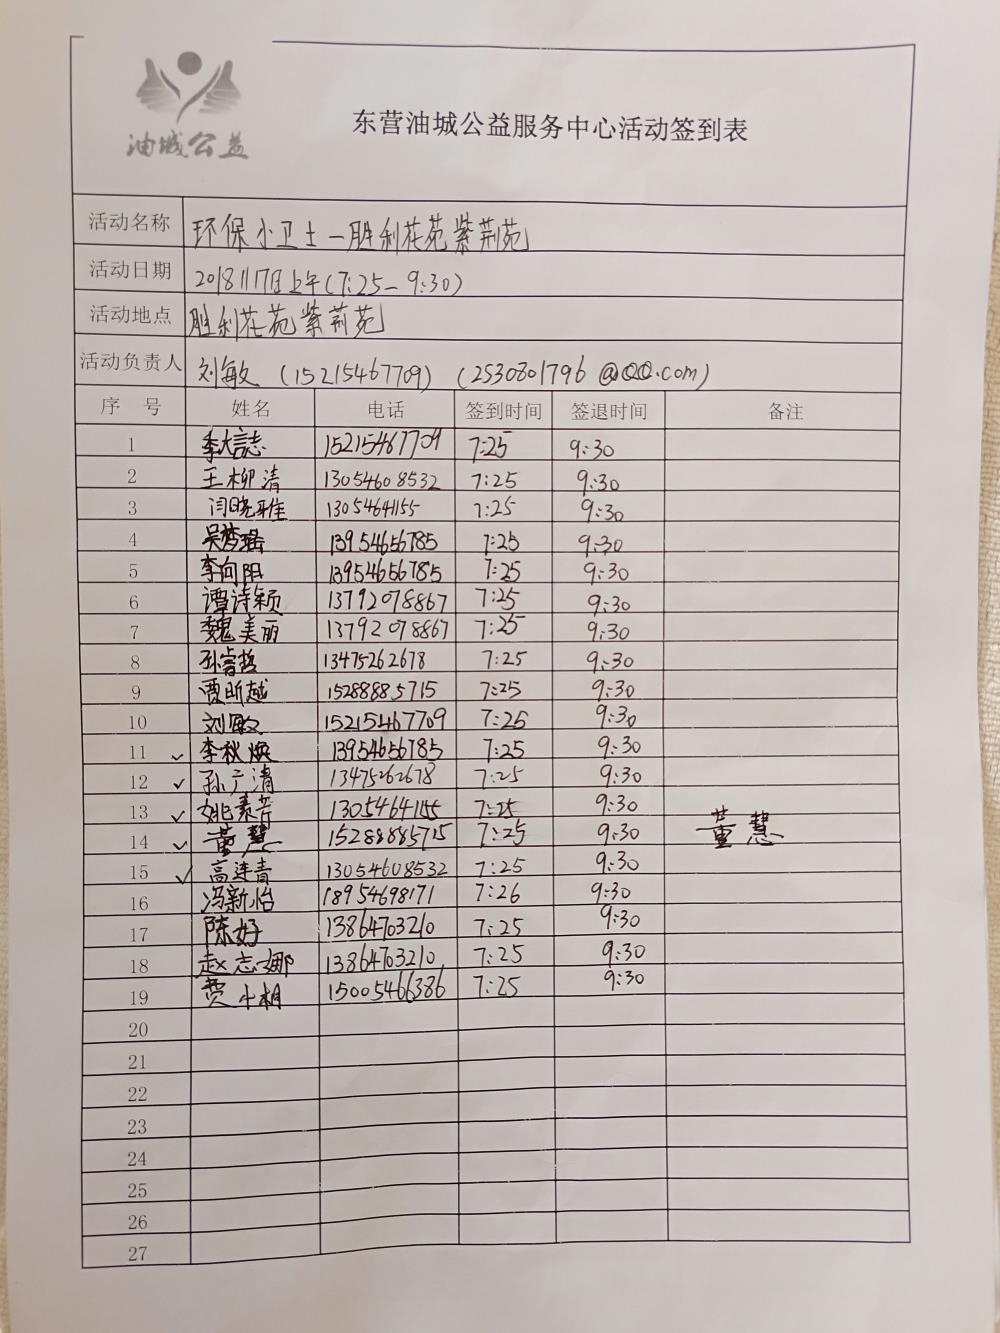 油城公益
东营油城公益服务中心活动签到表
活动名称 环保小卫士一胜利花苑紫荆苑
活动日期 2018 11 17日上午(7:25-9:30)
活动地点 胜利花苑紫荆苑
活动负责人 刘敏 (15215467709) (2530801796@QQ.com)
序 号 姓名 电话 签到时间 签退时间 备注
1 李大誌 15215467709 7:25 9:30
2 王柳清 13054608532 7:25 9:30
3 闫晓雅 1305464155 7:25 9:30
4 吴梦瑶 13954656785 7:25 9:30
5 李向阳 13954656785 7:25 9:30
6 谭诗颖 13792078867 7:25 9:30
7 魏美丽 13792078867 7:25 9:30
8 孙睿哲 13475262678 7:25 9:30
9 贾昕越 15288885715 7:25 9:30
10 刘敏 15215467709 7:25 9:30
11 ✓ 李秋焕 13954656785 7:25 9:30
12 ✓ 孙广清 13475262678 7:25 9:30
13 ✓ 姚素芳 13054641155 7:25 9:30
14 ✓ 董慧 15288885715 7:25 9:30 董慧
15 ✓ 高连青 13054608532 7:25 9:30
16 冯新怡 18954698171 7:26 9:30
17 陈好 13864703210 7:25 9:30
18 赵志娜 13864703210 7:25 9:30
19 贾小相 15005466386 7:25 9:30
20
21
22
23
24
25
26
27